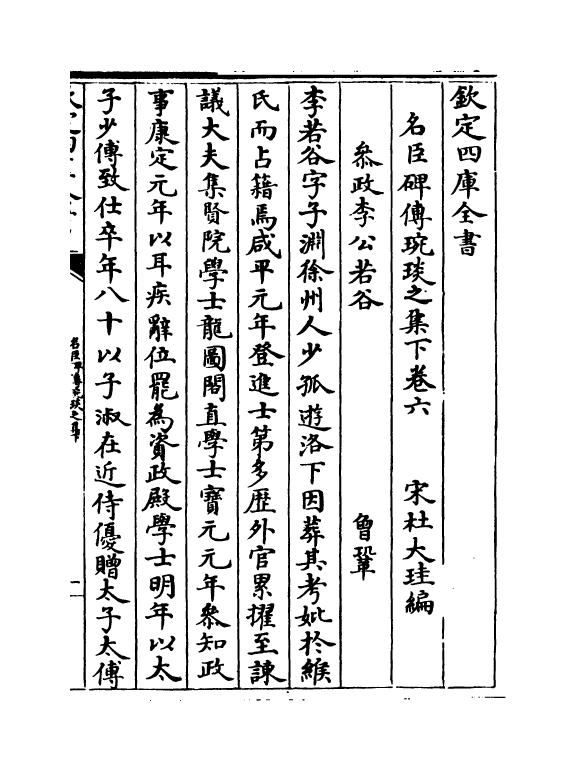 欽定四庫全書
名臣碑傳琬琰之集下卷六 宋杜大珪編
叅政李公若谷 曾鞏
李若谷字子淵徐州人少孤遊洛下因葬其考妣於緱
氏而占籍焉咸平元年登進士第多歴外官累擢至諫
議大夫集賢院學士龍圖閣直學士寶元元年叅知政
事康定元年以耳疾辭位罷為資政殿學士明年以太
子少傅致仕卒年八十以子淑在近侍優贈太子太傅
名臣碑傳琬琰之集下
一